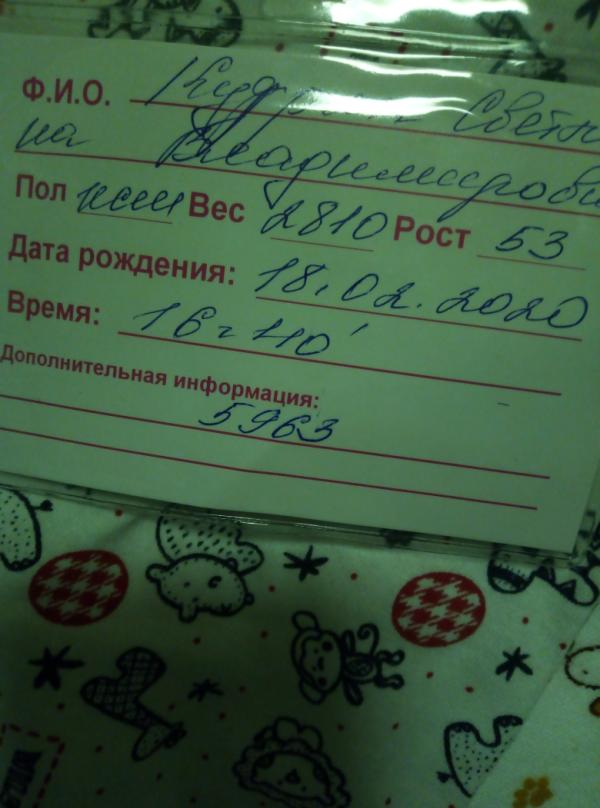 Ф.И.О. Светла
на Владимирови
Пол жен Вес 2810 Рост 53
Дата рождения: 18.02.2020
Время: 16ч 40'
Дополнительная информация:
5963